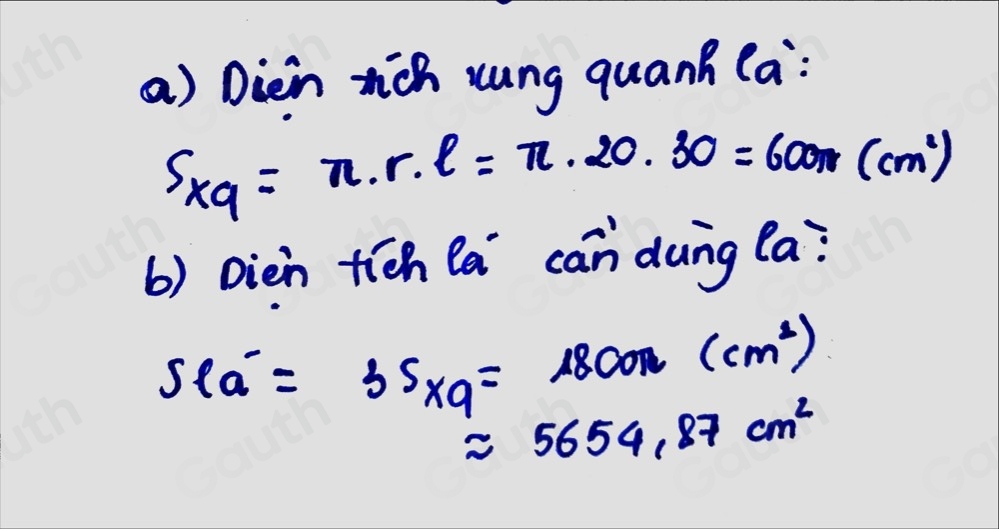 a) Diện tích xung quanh là:
Sxq = π.r.l = π.20.30 = 600π (cm²)
b) Diện tích lá cần dùng là:
Slá = 3Sxq = 1800π (cm²)
≈ 5654,87 cm²